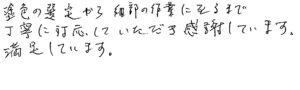 塗色の選定から細部の作業に至るまで
丁寧に対応していただき感謝しています。
満足しています。